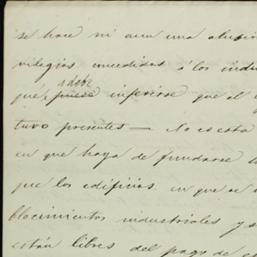 se hace ni aun una alusion
vilegios concedidos á los indus
debe
que, puese inferirse que el
tuvo presentes — No es esta
en que haya de fundarse
que los edificios en que se
blecimientos industriales y s
están libres del pago de